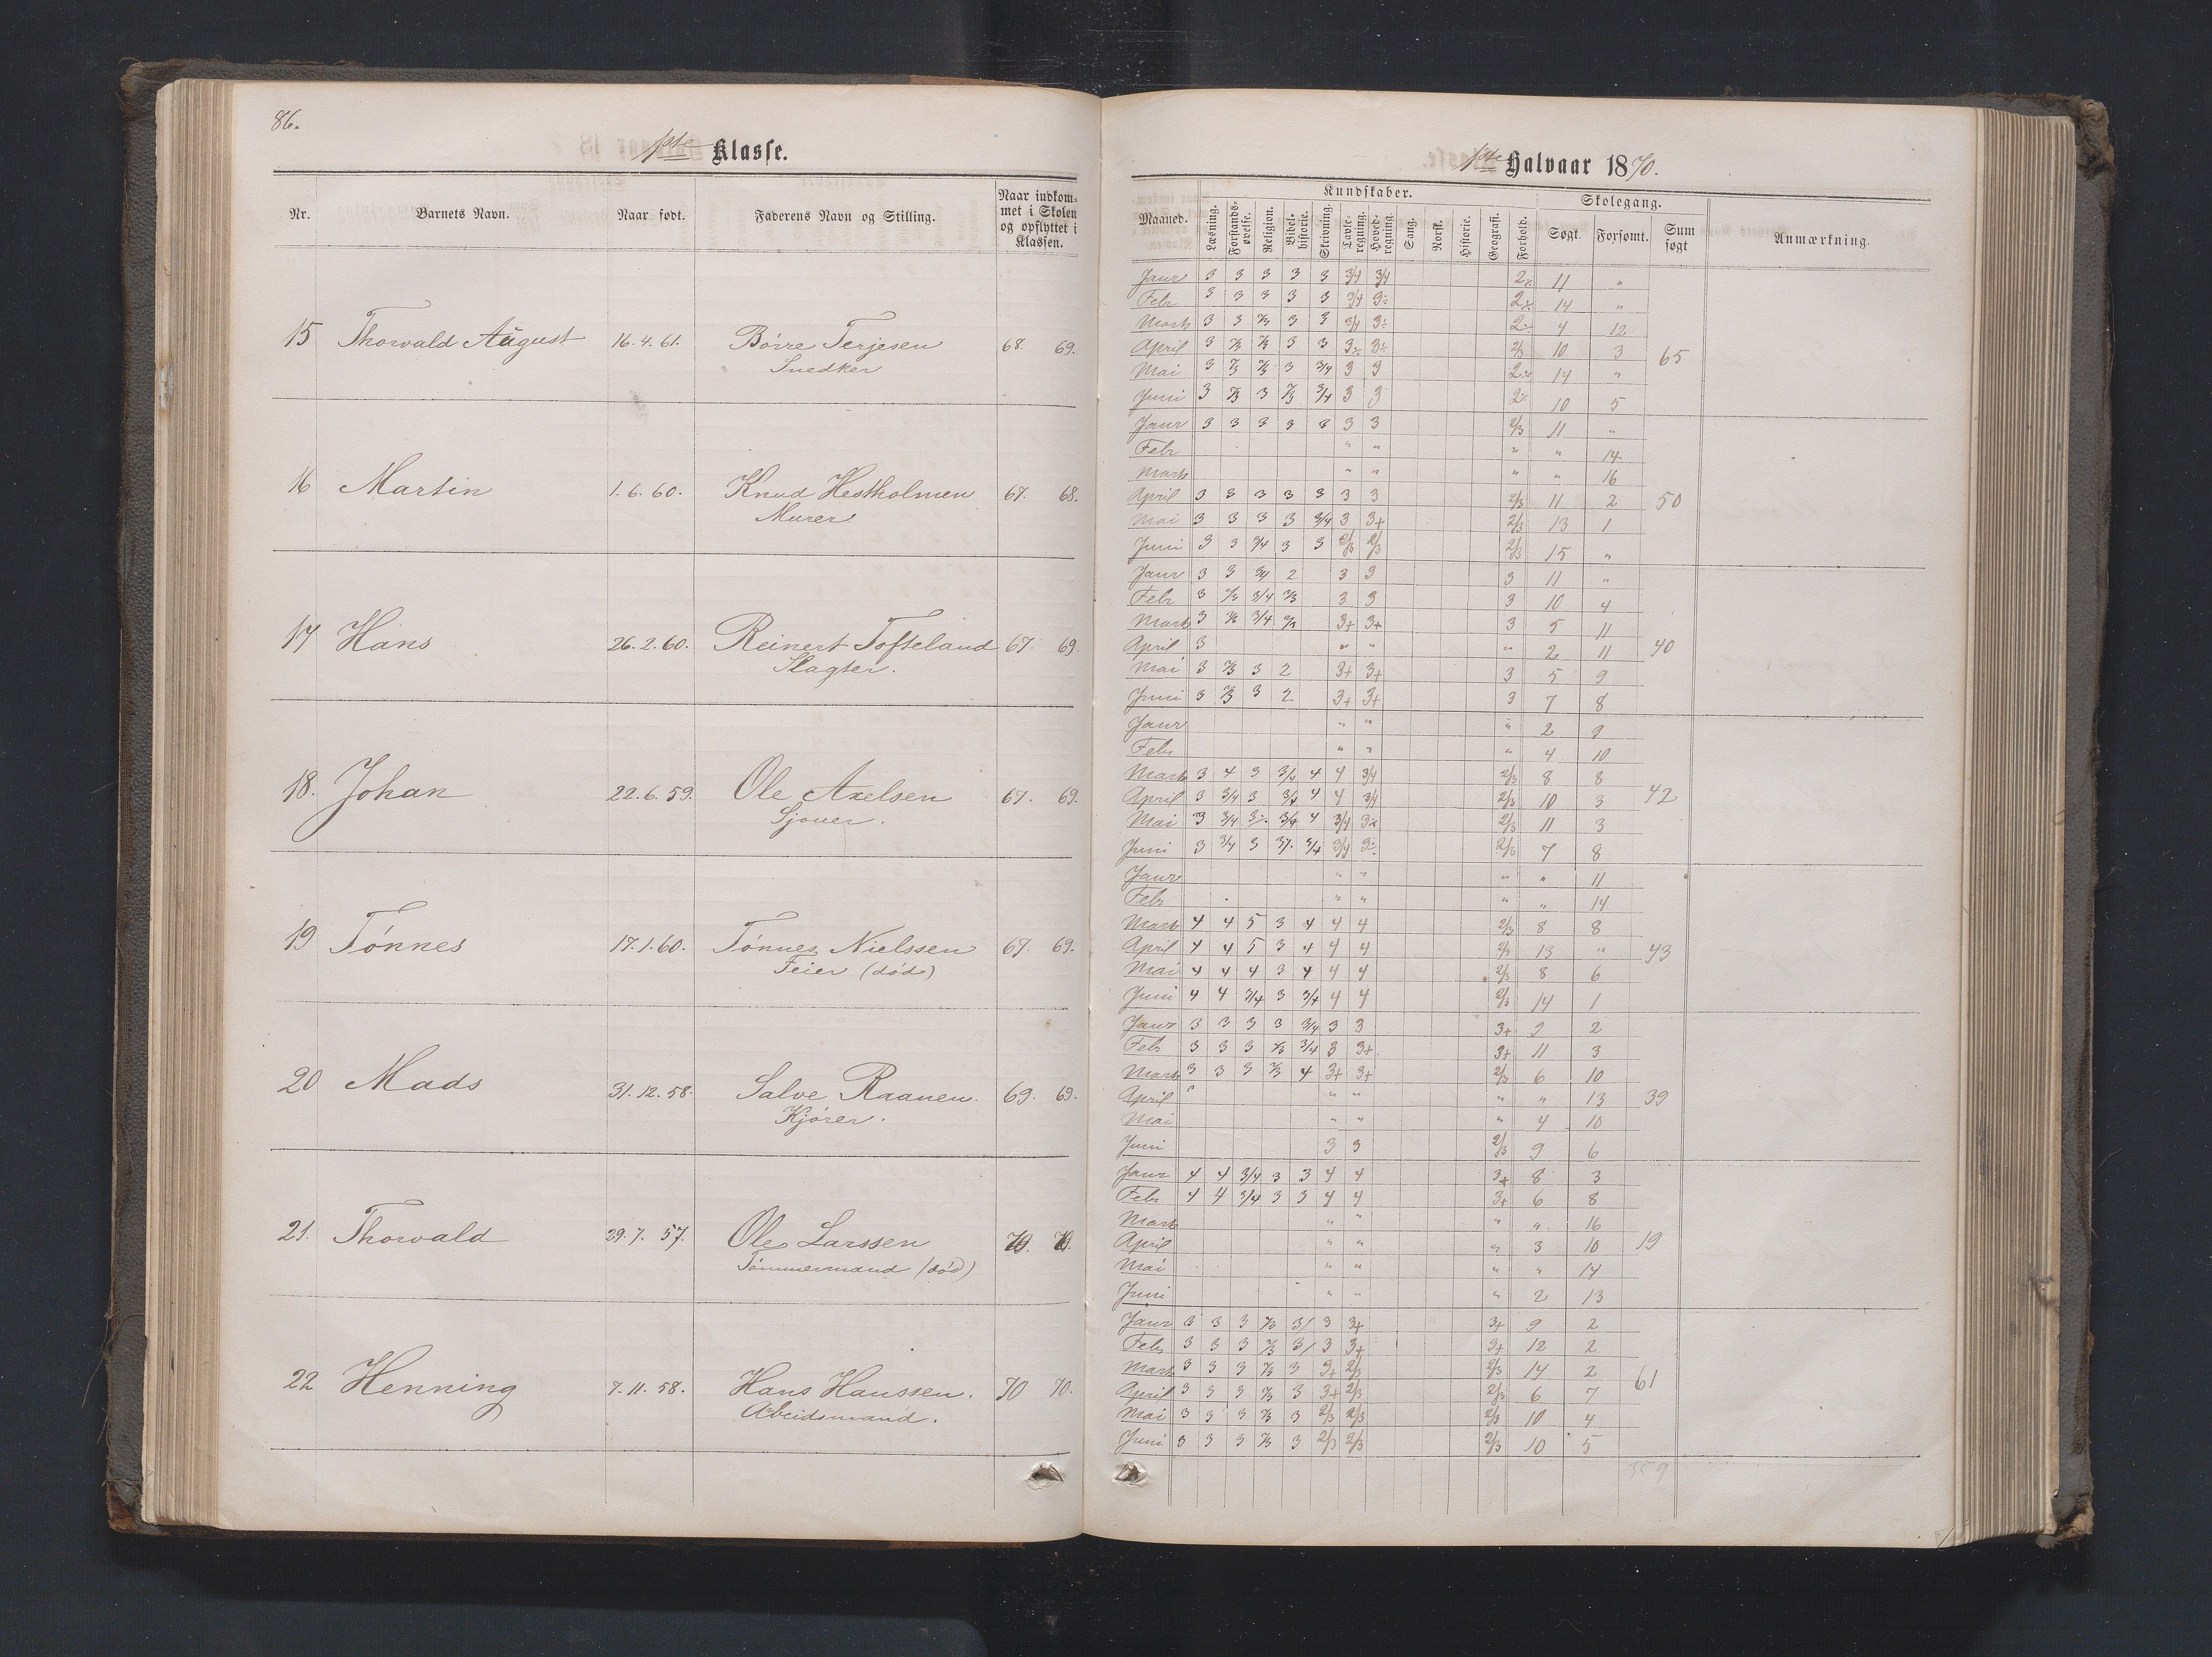 86.
1ste Klasse.
Nr. Barnets Navn. Naar født. Faderens Navn og Stilling. Naar indkom-
met i Skolen
og opflyttet i
Klassen.
15 Thorvald August 16.4.61. Børre Terjesen 68. 69.
Snedker
16 Martin 1.6.60. Knud Hestholmen 67. 68.
Murer
17 Hans 26.2.60. Reinert Tofteland 67. 69.
Slagter.
18. Johan 22.6.59. Ole Axelsen 67. 69.
Sjouer.
19 Tønnes 17.1.60. Tønnes Nielssen 67. 69.
Feier (død)
20 Mads 31.12.58. Salve Raanen. 69. 69.
Kjører.
21. Thorvald 29.7.57. Ole Larssen 70. 70.
Tømmermand (død)
22 Henning 7.11.58. Hans Hanssen. 70 70.
Abeidsmand.
1ste Halvaar 1870.
Kundskaber. Skolegang.
Maaned. Læsning. Forstands-
øvelse. Religion. Bibel-
historie. Skrivning. Tavle-
regning. Hoved-
regning. Sang. Norsk. Historie. Geografi. Forhold. Søgt. Forsømt. Sum
søgt Anmærkning.
Janr 3 3 3 3 3 3/4 3/4 2÷ 11 "
Febr 3 3 3 3 3 3/4 3÷ 2÷ 14 "
Marts 3 3 2/3 3 3 3/4 3÷ 2÷ 4 12
April 3 2/3 2/3 3 3 3÷ 3÷ 2/3 10 3 65
Mai 3 2/3 2/3 3 3/4 3 3 2÷ 14 "
Juni 3 2/3 3 2/3 3/4 3 3 2÷ 10 5
Janr 3 3 3 3 3 3 3 2/3 11 "
Febr " " " " 14
Marts " " " " 16
April 3 3 3 3 3 3 3 2/3 11 2 50
Mai 3 3 3 3 3/4 3 3+ 2/3 13 1
Juni 3 3 3/4 3 3 2/3 2/3 2/3 15 "
Janr 3 3 3/4 2 3 3 3 11 "
Febr 3 2/3 3/4 2/3 3 3 3 10 4
Marts 3 2/3 3/4 2/3 3+ 3+ 3 5 11
April 3 " " " 2 11 40
Mai 3 2/3 3 2 3+ 3+ 3 5 9
Juni 3 2/3 3 2 3+ 3+ 3 7 8
Janr " " " 2 9
Febr " " " 4 10
Marts 3 4 3 3/4 4 4 3/4 2/3 8 8
April 3 3/4 3 3/4 4 4 3/4 2/3 10 3 42
Mai 3 3/4 3÷ 3/4 4 3/4 3÷ 2/3 11 3
Juni 3 3/4 3 3÷ 3/4 3/4 3÷ 2/3 7 8
Janr " " " " 11
Febr " " " " 14
Marts 4 4 5 3 4 4 4 2/3 8 8
April 4 4 5 3 4 4 4 2/3 13 " 43
Mai 4 4 4 3 4 4 4 2/3 8 6
Juni 4 4 3/4 3 3/4 4 4 2/3 14 1
Janr 3 3 3 3 3/4 3 3 3+ 9 2
Febr 3 3 3 2/3 3/4 3 3+ 3+ 11 3
Marts 3 3 3 2/3 4 3+ 3+ 2/3 6 10
April " " " " " 13 39
Mai " " " 4 10
Juni 3 3 2/3 9 6
Janr 4 4 3/4 3 3 4 4 3+ 8 3
Febr 4 4 3/4 3 3 4 4 3+ 6 8
Marts " " " " 16
April " " " 3 10 19
Mai " " " " 14
Juni " " " 2 13
Janr 3 3 3 2/3 3/ 3 3+ 3+ 9 2
Febr 3 3 3 2/3 3/ 3 3+ 3+ 12 2
Marts 3 3 3 2/3 3 3+ 2/3 2/3 14 2
April 3 3 3 2/3 3 3+ 2/3 2/3 6 7 61
Mai 3 3 3 2/3 3 2/3 2/3 2/3 10 4
Juni 3 3 3 2/3 3 2/3 2/3 2/3 10 5
359